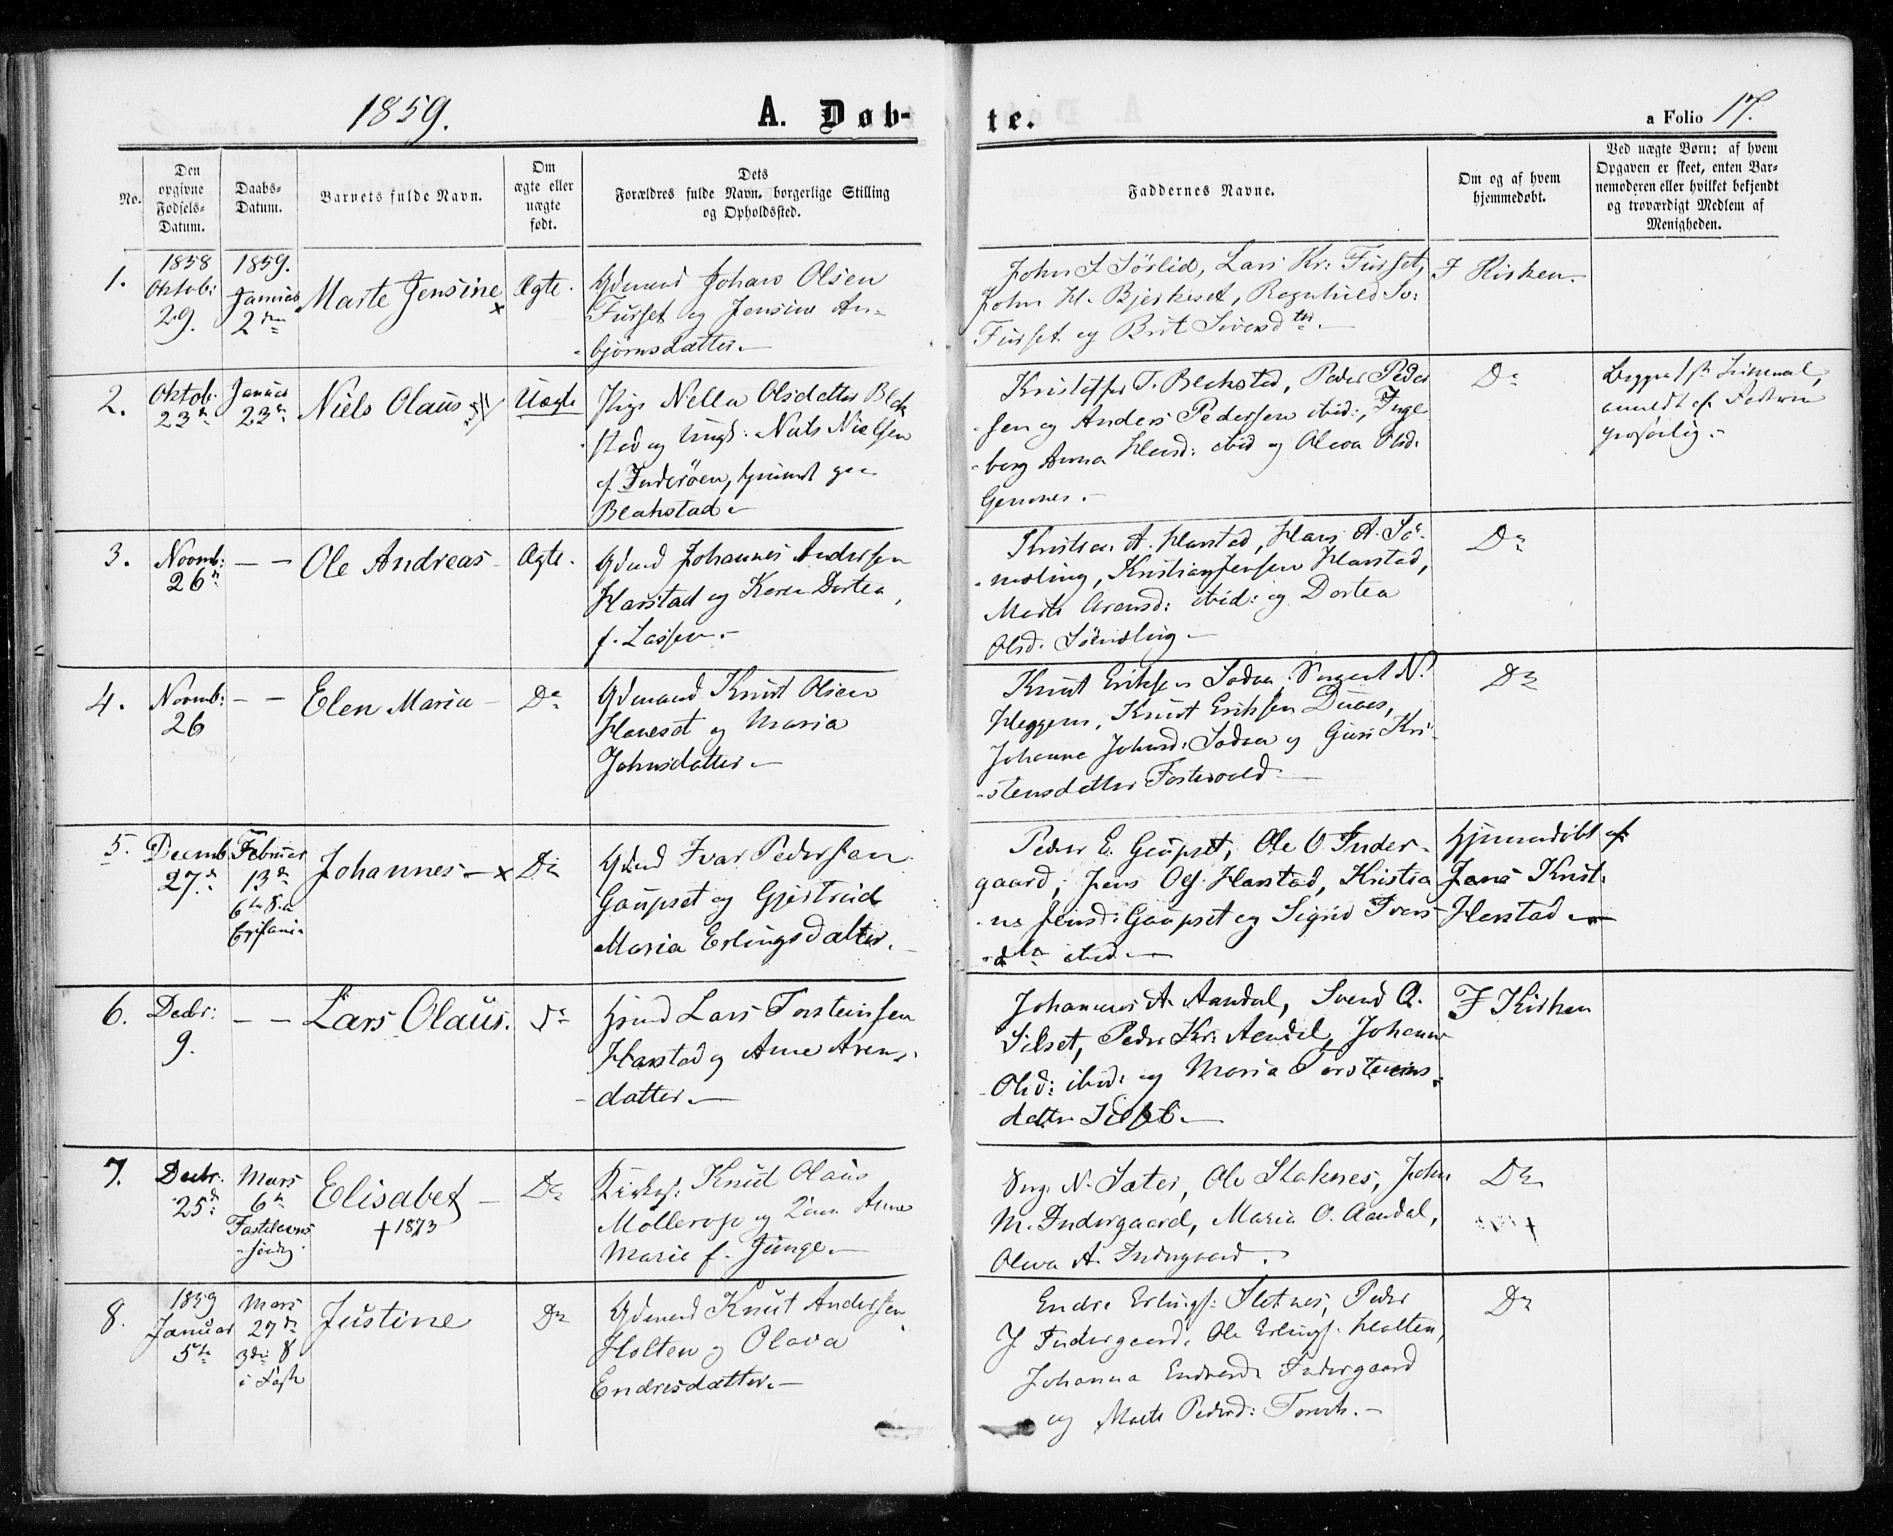 1859.
A. Døb-
te.
a Folio 17.
No.
Den opgivne Fødsels-Datum.
Daabs-Datum.
Barnets fulde Navn.
Om ægte eller uægte født.
Dets
Forældres fulde Navn, borgerlige Stilling
og Opholdssted.
Faddernes Navne.
Om og af hvem
hjemmedøbt.
Ved uægte Børn: af hvem
Opgaven er skeet, enten Bar-
nemoderen eller hvilket bekjendt
og troværdigt Medlem af
Menigheden.
1.
1858
Oktob:
29.
1859.
Januar
2den
Marte Jensine x
Ægte.
Gdmand Johan Olsen
Furset og Jensine An-
bjørnsdatter.-
John J Sörlid, Lars Kr: Furset,
John H. Bjerkeset, Ragnhild
Furset og Brit Siversdtr.-
I Kirken.
2.
Oktob:
23
Januar
23
Niels Olaus
Uægte
Pige Nella Olsdatter Blek
stad og Ungk: Niels Nielsen
f. Inderöen, hjemme paa
Blakstad.
Kristoffer T. Blakstad, Peder Peder
sen og Anders Pedersen ibid:, Inge
borg Anna ibid og Oleva Olsd:
D:
3.
Novmb:
26
- -
Ole Andreas
Ægte.
Gdmd Johannes Andersen
Harstad og Karen Dortea,
f. Lassen.-
Kristian A. Harstad, Hans A. Sö-
möling, Kristian Jensen Harstad,
Marte Arensd: ibid: og Dortea
Olsd.
D:
4.
Novmb:
26
- -
Elen Maria
D:
Gdmand Knut Olsen
Haneset og Maria
Johnsdatter.-
Knut Eriksen N.
Heggem, Knut Eriksen
Johanne Johnsd: og Guri Kri-
stensdatter Fostervold
D:
5.
Decmb
27
Februar
13
6te S. e.
Epifani
Johannes x
D:
Gdmd Ivar Pedersen
Gaupset og Gjertrud
Maria Erlingsdatter.
Peder E. Gaupset, Ole O Inder-
gaard, Jens Ols. Harstad, Kristia
ne Jensd: Gaupset og Sigrid Ivers-
dtr ibid.
Hjemmedöbt af
Jens Krist.
Harstad
6.
Decbr:
9.
- -
Lars Olaus.
D:
Lars Torsteinsen
Harstad og Anne Arens-
datter.-
Johannes A. Aandal, Svend O.
Silset, Peder Kr: Aandal, Johanne
Olsd: ibid: og Maria Torsteins-
datter Silset.-
I Kirken
7.
Decbr.
25
Mars
6
Fastelavns
söndg.
Elisabet
† 1873
D:
Kirkes: Knud Olaus
Möllerop og Anne
Marie f. Junge.-
N. Sæter, Ole Staknes, John
M. Indergaard, Maria O. Aandal,
Oleva A. Indergaard.
D:
8.
1859
Januar
5te
Mars
27
3die S
i Faste
Justine
D:
Gdmand Knut Andersen
Holten og Olava
Endresdatter.-
Endre Erlings: Sletnes, Peder
J Indergaard, Ole Erlings. Holten,
Johanna Endresd: Indergaard
og Marte Pedersd:
D: